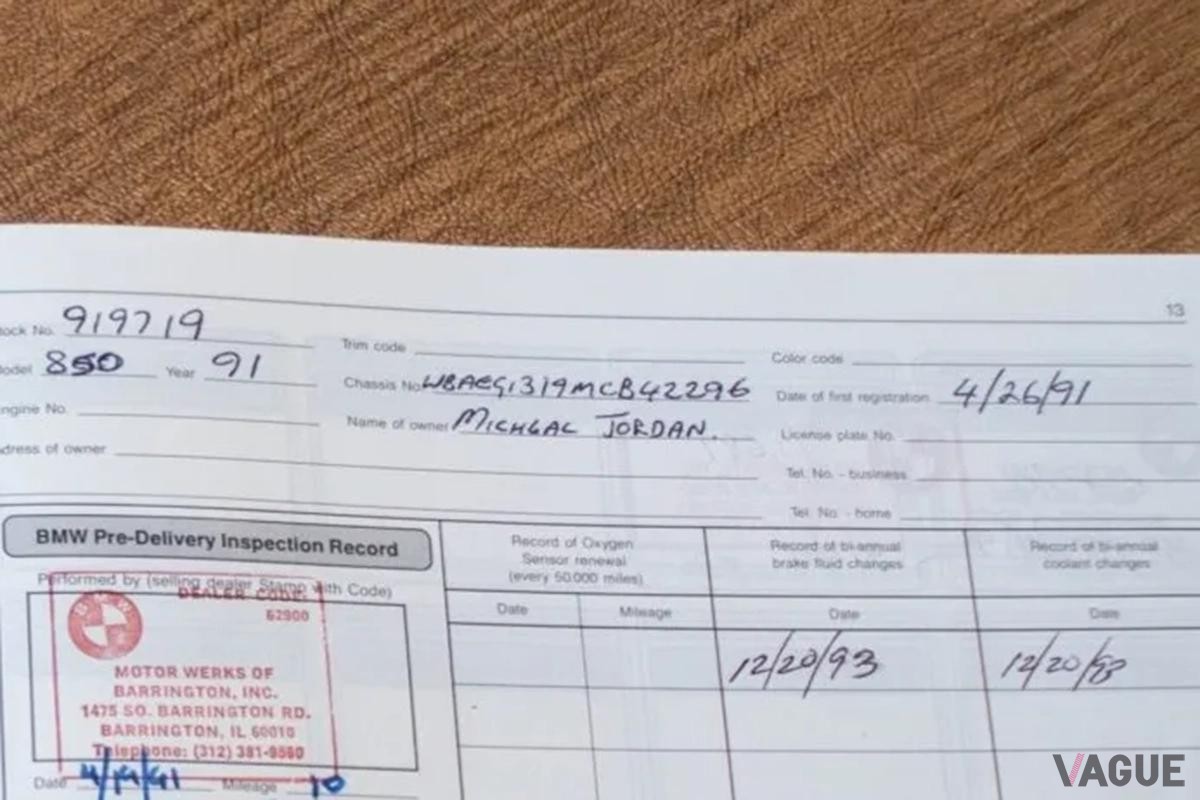 13
ock No. 919719
Trim code
Color code
odel 850 Year 91
Chassis No. WBAEG1319MCB42296
Date of first registration 4/26/91
ngine No.
Name of owner MICHEAL JORDAN.
License plate No.
dress of owner
Tel. No. - business
Tel. No. - home
BMW Pre-Delivery Inspection Record
Performed by (selling dealer Stamp with Code)
DEALER CODE:
62900
BMW
MOTOR WERKS OF
BARRINGTON, INC.
1475 SO. BARRINGTON RD.
BARRINGTON, IL 60010
Telephone: (312) 381-
Date 4/19/91 Mileage 10
Record of Oxygen
Sensor renewal
(every 50.000 miles)
Date Mileage
Record of bi-annual
brake fluid changes
Date
12/20/93
Record of bi-annual
coolant changes
Date
12/20/93
VAGUE